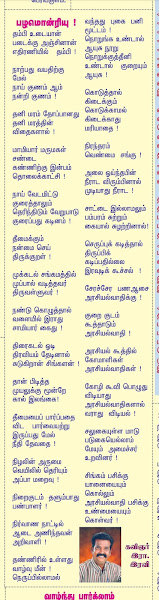 பழமொன்றிபு !
தம்பி உடையான்
படைக்கு அஞ்சினான்
எதிரணியில் தம்பி !
நாற்பது வயதிற்கு
மேல்
நாய் குணம் ஆம்
நன்றி குணம் !
தனி மரம் தோப்பானது
தனி மரத்தின்
விதைகளால் !
மாமியார் மருமகள்
சண்டை
கண்ணிற்கு இன்பம்
தொலைக்காட்சி !
நாய் வேடமிட்டு
குரைத்தாலும்
தெரிந்திடும் வேறுபாடு
குரைப்பது கடினம் !
தீமைக்கும்
நன்மை செய்
திருக்குறள் !
முக்கடல் சங்கமத்தில்
முப்பால் வடித்தவர்
திருவள்ளுவர் !
நண்டு கொழுத்தால்
வளையில் இராது
சாமியார் கைது !
திரைகடல் ஓடி
திரவியம் தேடினால்
சுடுகிறான் சிங்களன் !
தான் பிடித்த
முயலுக்கு மூன்றே
கால் இலங்கை!
தீமையைப் பார்ப்பதை
விட பார்வையற்று
இருப்பது மேல்
நீதி தேவதை !
நிழலின் அருமை
வெயிலில் தெரியும்
அப்பா மறைவு !
நிறைகுடம் தளும்பாது
பண்பாளர் !
நிர்வாண நாட்டில்
ஆடை அணிந்தவன்
அறிவாளி !
தண்ணீரில் உள்ளது
வாழ்வு மீன் !
நெருப்பில்லாமல்
வந்தது புகை பனி
மூட்டம் !
நொறுங்க உண்டால்
ஆயுசு நூறு
நொறுக்குத்தீனி
உண்டால் குறையும்
ஆயுசு !
கொடுத்தால்
கிடைக்கும்
கொடுக்காமல்
கிடைக்காது
மரியாதை !
நிரந்தரம்
வெண்மை சங்கு !
அலை ஓய்ந்தபின்
நீராட விரும்பினால்
முடியாது நீராட !
சாட்டை இல்லாமலும்
பம்பரம் சுற்றும்
கையால் சுழற்றினால்!
செருப்புக் கடித்தால்
திருப்பிக்
கடிப்பதில்லை
இரவுடிக் கூச்சல் !
சேரச்சேர பணஆசை
அரசியல்வாதிக்கு !
குறை குடம்
கூத்தாடும்
அரசியல்வாதி !
அரசியல் கூத்தில்
கோமாளிகள்
அரசியல்வாதிகள் !
கோழி கூவி பொழுது
விடியாது
அரசியல்வாதிகளால்
வராது விடியல் !
சலுகையுள்ள மாடு
படுகையெல்லாம்
மேயும் அமைச்சர்
உறவினர் !
சிங்கம் பசிக்கு
யானையையும்
கொல்லும்
அரசியல்வாதி பசிக்கு
உண்மையையும்
கொள்வர் !
கவிஞர்
இரா.
இரவி
வாழ்ந்து பார்க்கலாம்